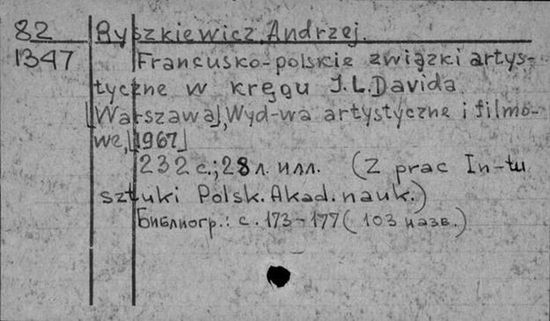 82 Ryszkiewicz, Andrzej.
1347 Francusko-polskie związki artys-
tyczne w kręgu J.L. Davida.
[Warszawa], Wyd-wa artystyczne i filmo-
we, [1967]
232 с.; 28 л. илл. (Z prac In-tu
sztuki Polsk. Akad. nauk.)
Библиогр.: с. 173-177 (103 назв.)